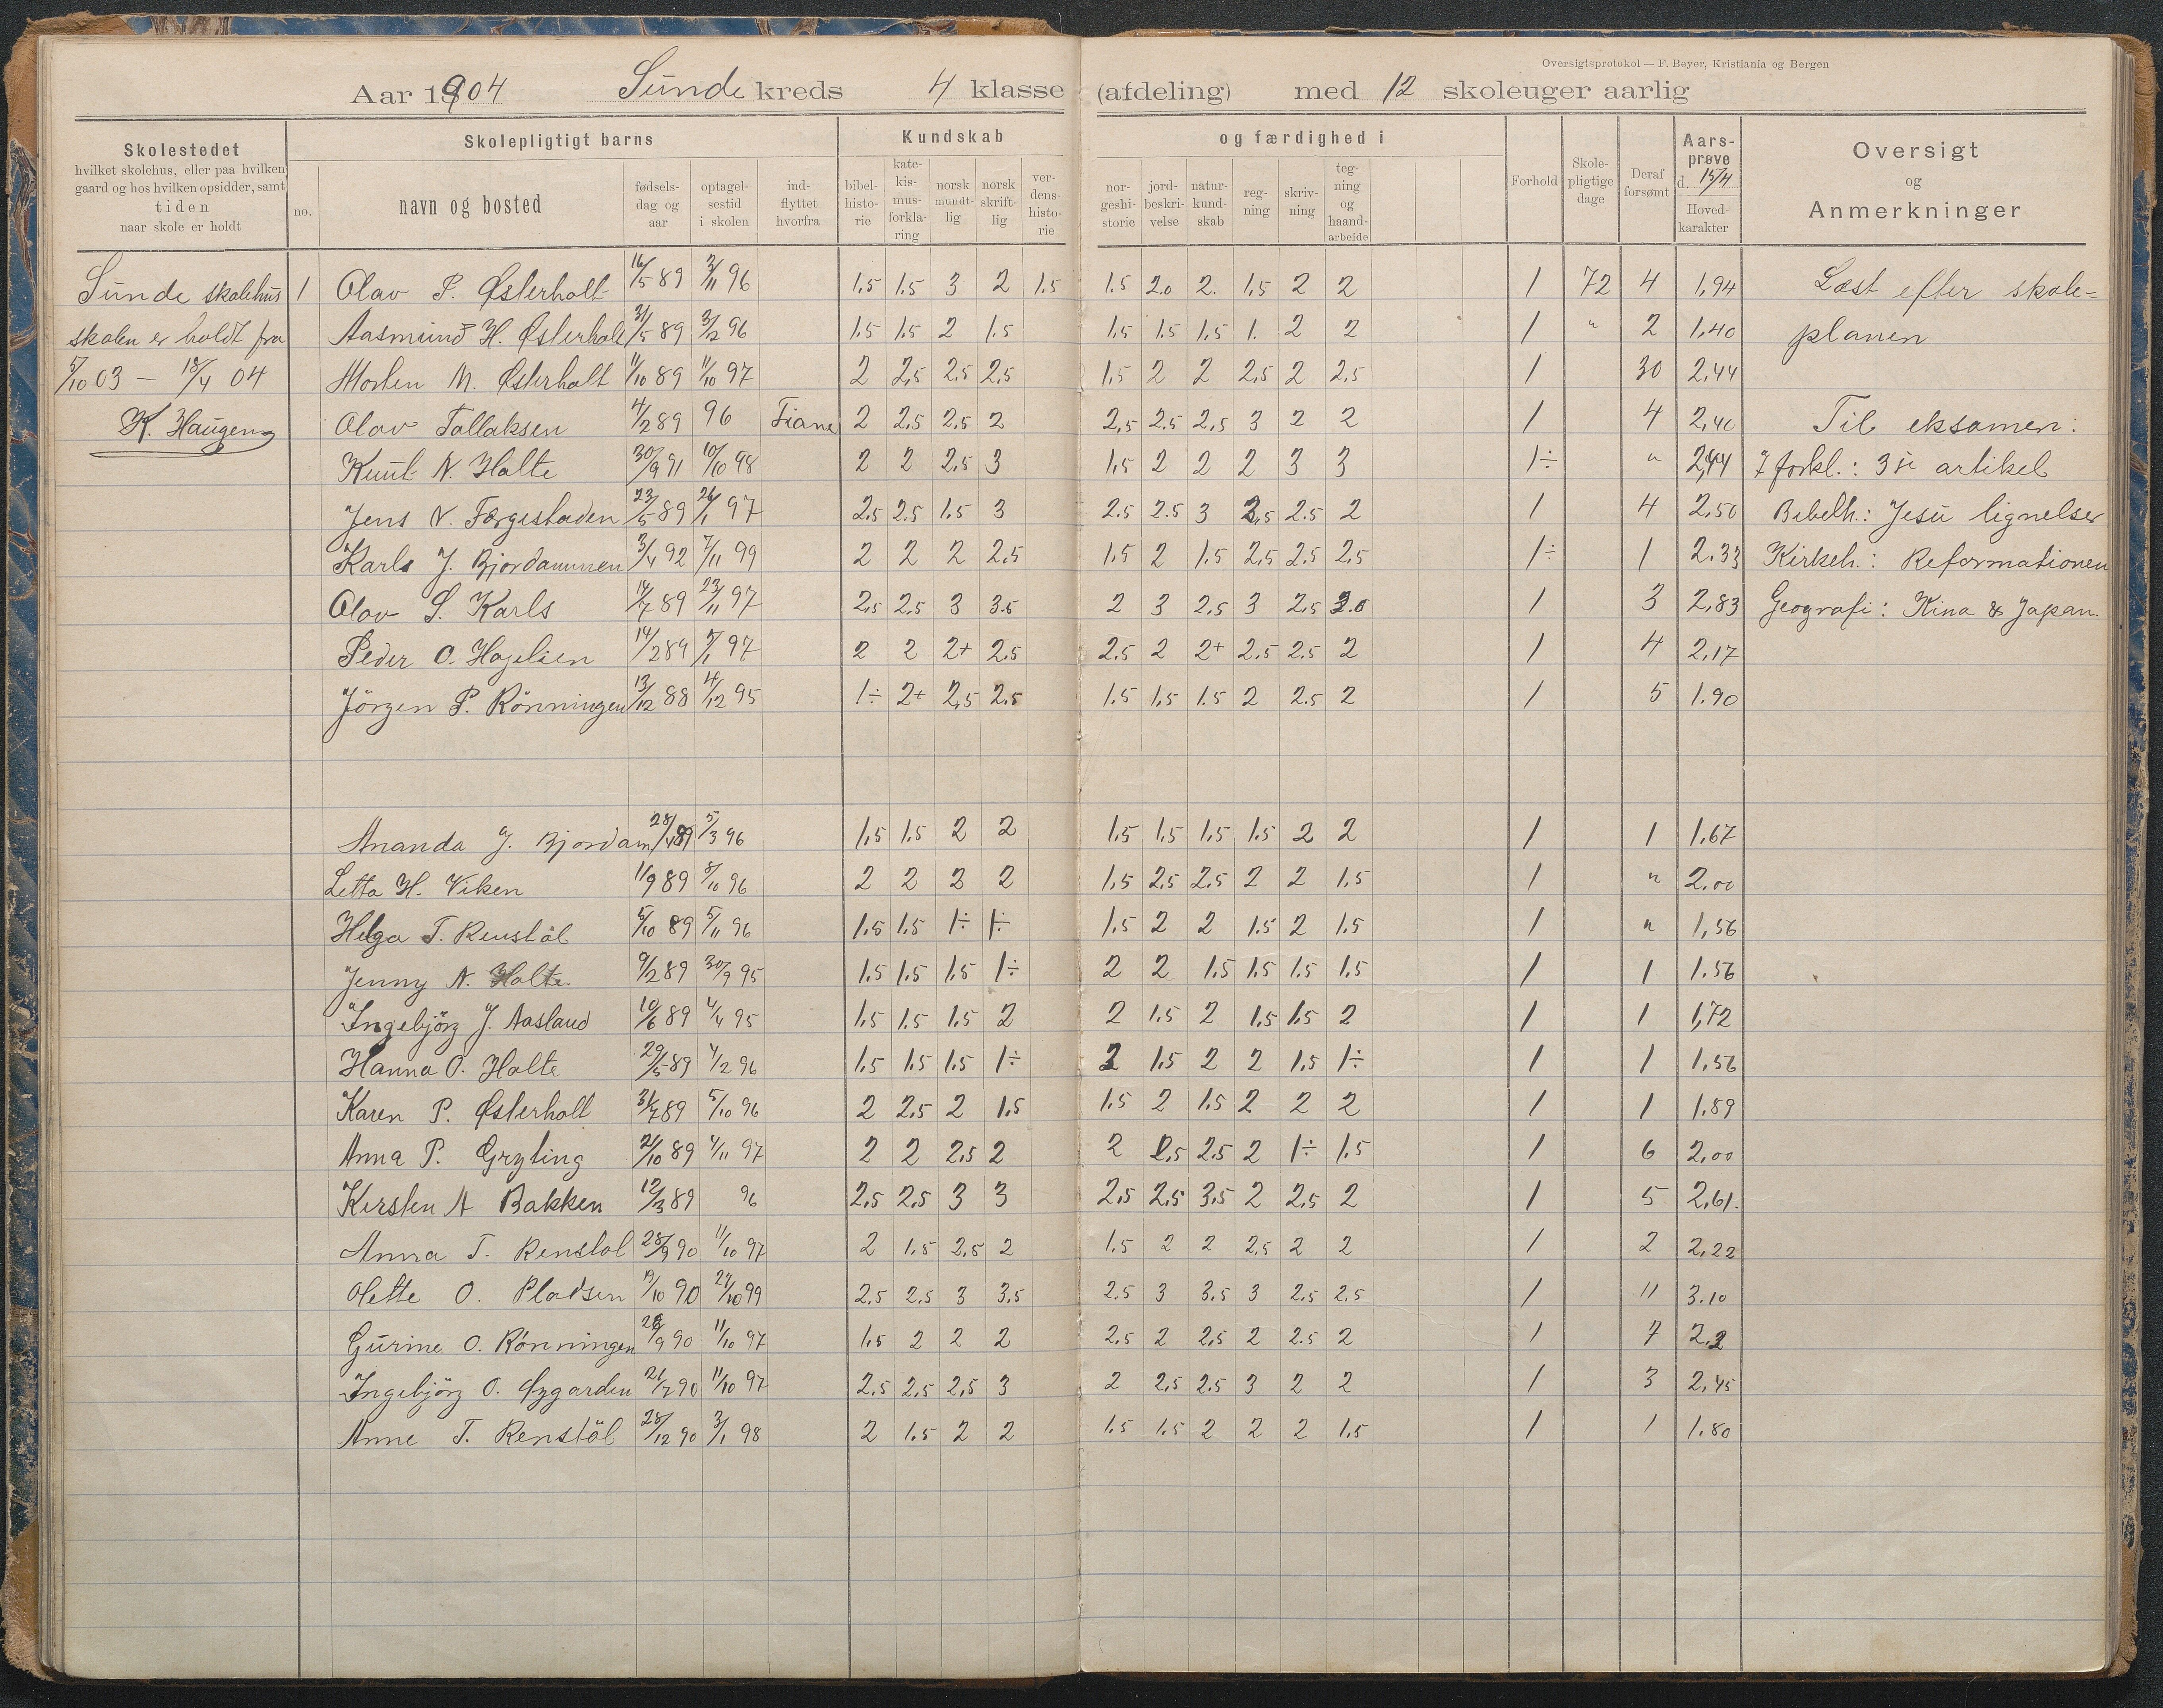 Oversigtsprotokol — F. Beyer, Kristiania og Bergen
Aar 1904 Sunde kreds 4 klasse (afdeling) med 12 skoleuger aarlig
Skolestedet
hvilket skolehus, eller paa hvilken
gaard og hos hvilken opsidder, samt
tiden
naar skole er holdt
no.
Skolepligtigt barns
navn og bosted
fødsels-
dag og
aar
optagel-
sestid
i skolen
ind-
flyttet
hvorfra
Kundskab
bibel-
histo-
rie
kate-
kis-
mus-
forkla-
ring
norsk
mundt-
lig
norsk
skrift-
lig
ver-
dens-
histo-
rie
og færdighed i
nor-
geshi-
storie
jord-
beskri-
velse
natur-
kund-
skab
reg-
ning
skriv-
ning
teg-
ning
og
haand-
arbeide
Forhold
Skole-
pligtige
dage
Deraf
forsømt
Aars-
prøve
d. 15/4
Hoved-
karakter
Oversigt
og
Anmerkninger
Sunde skolehus 1 Olav P. Østerholt 16/5 89 2/11 96 1.5 1.5 3 2 1.5 1.5 2.0 2. 1.5 2 2 1 72 4 1,94 Læst efter skole-
skolen er holdt fra Aasmund H. Østerholt 31/5 89 3/2 96 1.5 1.5 2 1.5 1.5 1.5 1,5 1. 2 2 1 " 2 1,40 planen
5/10 03 — 18/4 04 Morten M. Østerholt 11/10 89 11/10 97 2 2,5 2.5 2,5 1.5 2 2 2,5 2 2,5 1 30 2,44
K. Haugen Olav Tallaksen 4/2 89 96 Fiane 2 2,5 2,5 2 2,5 2.5 2,5 3 2 2 1 4 2,40 Til eksamen:
Knut N. Holte 30/9 91 10/10 98 2 2 2.5 3 1.5 2 2 2 3 3 1÷ " 2,44 forkl.: 3die artikel
Jens N. Færgestaden 23/5 89 26/1 97 2.5 2.5 1.5 3 2.5 2.5 3 2,5 2.5 2 1 4 2,50 Bibelh.: Jesu lignelser
Karls J. Bjordammen 3/4 92 7/11 99 2 2 2 2,5 1.5 2 1.5 2,5 2.5 2,5 1÷ 1 2.33 Kirkeh.: Reformationen
Olav S. Karls 14/7 89 23/11 97 2,5 2.5 3 3.5 2 3 2.5 3 2,5 1 3 2,83 Geografi: Kina & Japan.
Peder O. Hagelien 14/2 89 7/1 97 2 2 2+ 2.5 2.5 2 2+ 2.5 2.5 2 1 4 2,17
Jörgen P. Rönningen 13/12 88 4/12 95 1÷ 2+ 2,5 2.5 1.5 1,5 1.5 2 2.5 2 1 5 1.90
Ananda J. Bjordam 28/4 89 5/3 96 1,5 1.5 2 2 1.5 1,5 1,5 1.5 2 2 1 1 1,67
Letta H. Viken 11/9 89 8/10 96 2 2 2 2 1,5 2,5 2,5 2 2 1,5 1 " 2,00
Helga T. Renstöl 5/10 89 5/11 96 1.5 1.5 1÷ 1÷ 1.5 2 2 1.5 2 1.5 1 " 1,56
Jenny N. Holte. 9/2 89 30/9 95 1.5 1.5 1.5 1÷ 2 2 1.5 1.5 1.5 1.5 1 1 1.56
Ingebjörg J. Aasland 10/6 89 4/4 95 1.5 1.5 1.5 2 2 1.5 2 1.5 1.5 2 1 1 1,72
Hanna O. Holte 29/5 89 4/2 96 1.5 1.5 1.5 1÷ 2 1.5 2 2 1,5 1÷ 1 1 1,56
Karen P. Østerholt 31/7 89 5/10 96 2 2,5 2 1.5 1.5 2 1.5 2 2 2 1 1 1.89
Anna P. Gryting 21/10 89 4/11 97 2 2 2.5 2 2 2,5 2,5 2 1÷ 1.5 1 6 2,00
Kirsten A Bakken 12/3 89 96 2.5 2.5 3 3 2.5 2,5 3.5 2 2,5 2 1 5 2,61.
Anna T. Renstol 28/9 90 11/10 97 2 1.5 2,5 2 1.5 2 2 2,5 2 2 1 2 2,22
Olette O. Pladsen 19/10 90 27/10 99 2.5 2.5 3 3,5 2.5 3 3.5 3 2.5 2.5 1 11 3.10
Gurine O. Rönningen 28/9 90 11/10 97 1.5 2 2 2 2,5 2 2,5 2 2.5 2 1 7 2,2
Ingebjörg O. Øygarden 21/7 90 11/10 97 2.5 2,5 2,5 3 2 2,5 2.5 3 2 2 1 3 2,45
Anne T. Renstöl 28/12 90 3/1 98 2 1.5 2 2 1.5 1.5 2 2 2 1.5 1 1 1.80